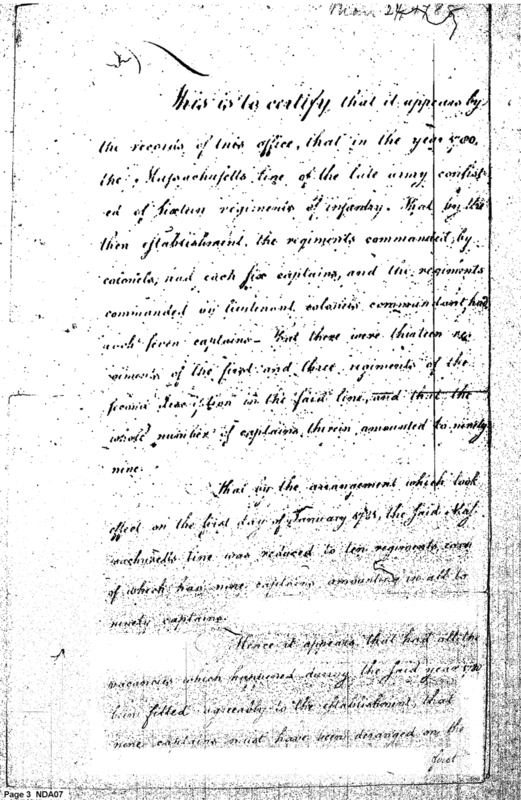 Nov 24 1788
This is to certify that it appears by
the records of this office, that in the year 1780,
the Massachusetts line of the late army consist-
ed of sixteen regiments of infantry. That by the
then establishment, the regiments commanded by
colonels, had each six captains, and the regiments
commanded by lieutenant colonels commandant, had
each seven captains — That there were thirteen re-
giments of the first and three regiments of the
second description in the said line, and that the
whole number of captains therein amounted to ninety
nine.
That by the arrangement which took
effect on the first day of January 1781, the said Mas-
sachusetts line was reduced to ten regiments, each
of which had nine captains amounting in all to
ninety captains.
Hence it appears, that had all the
vacancies which happened during the said year 1780
been filled agreeably to the establishment, that
nine captains must have been deranged on the
first
Page 3 NDA07